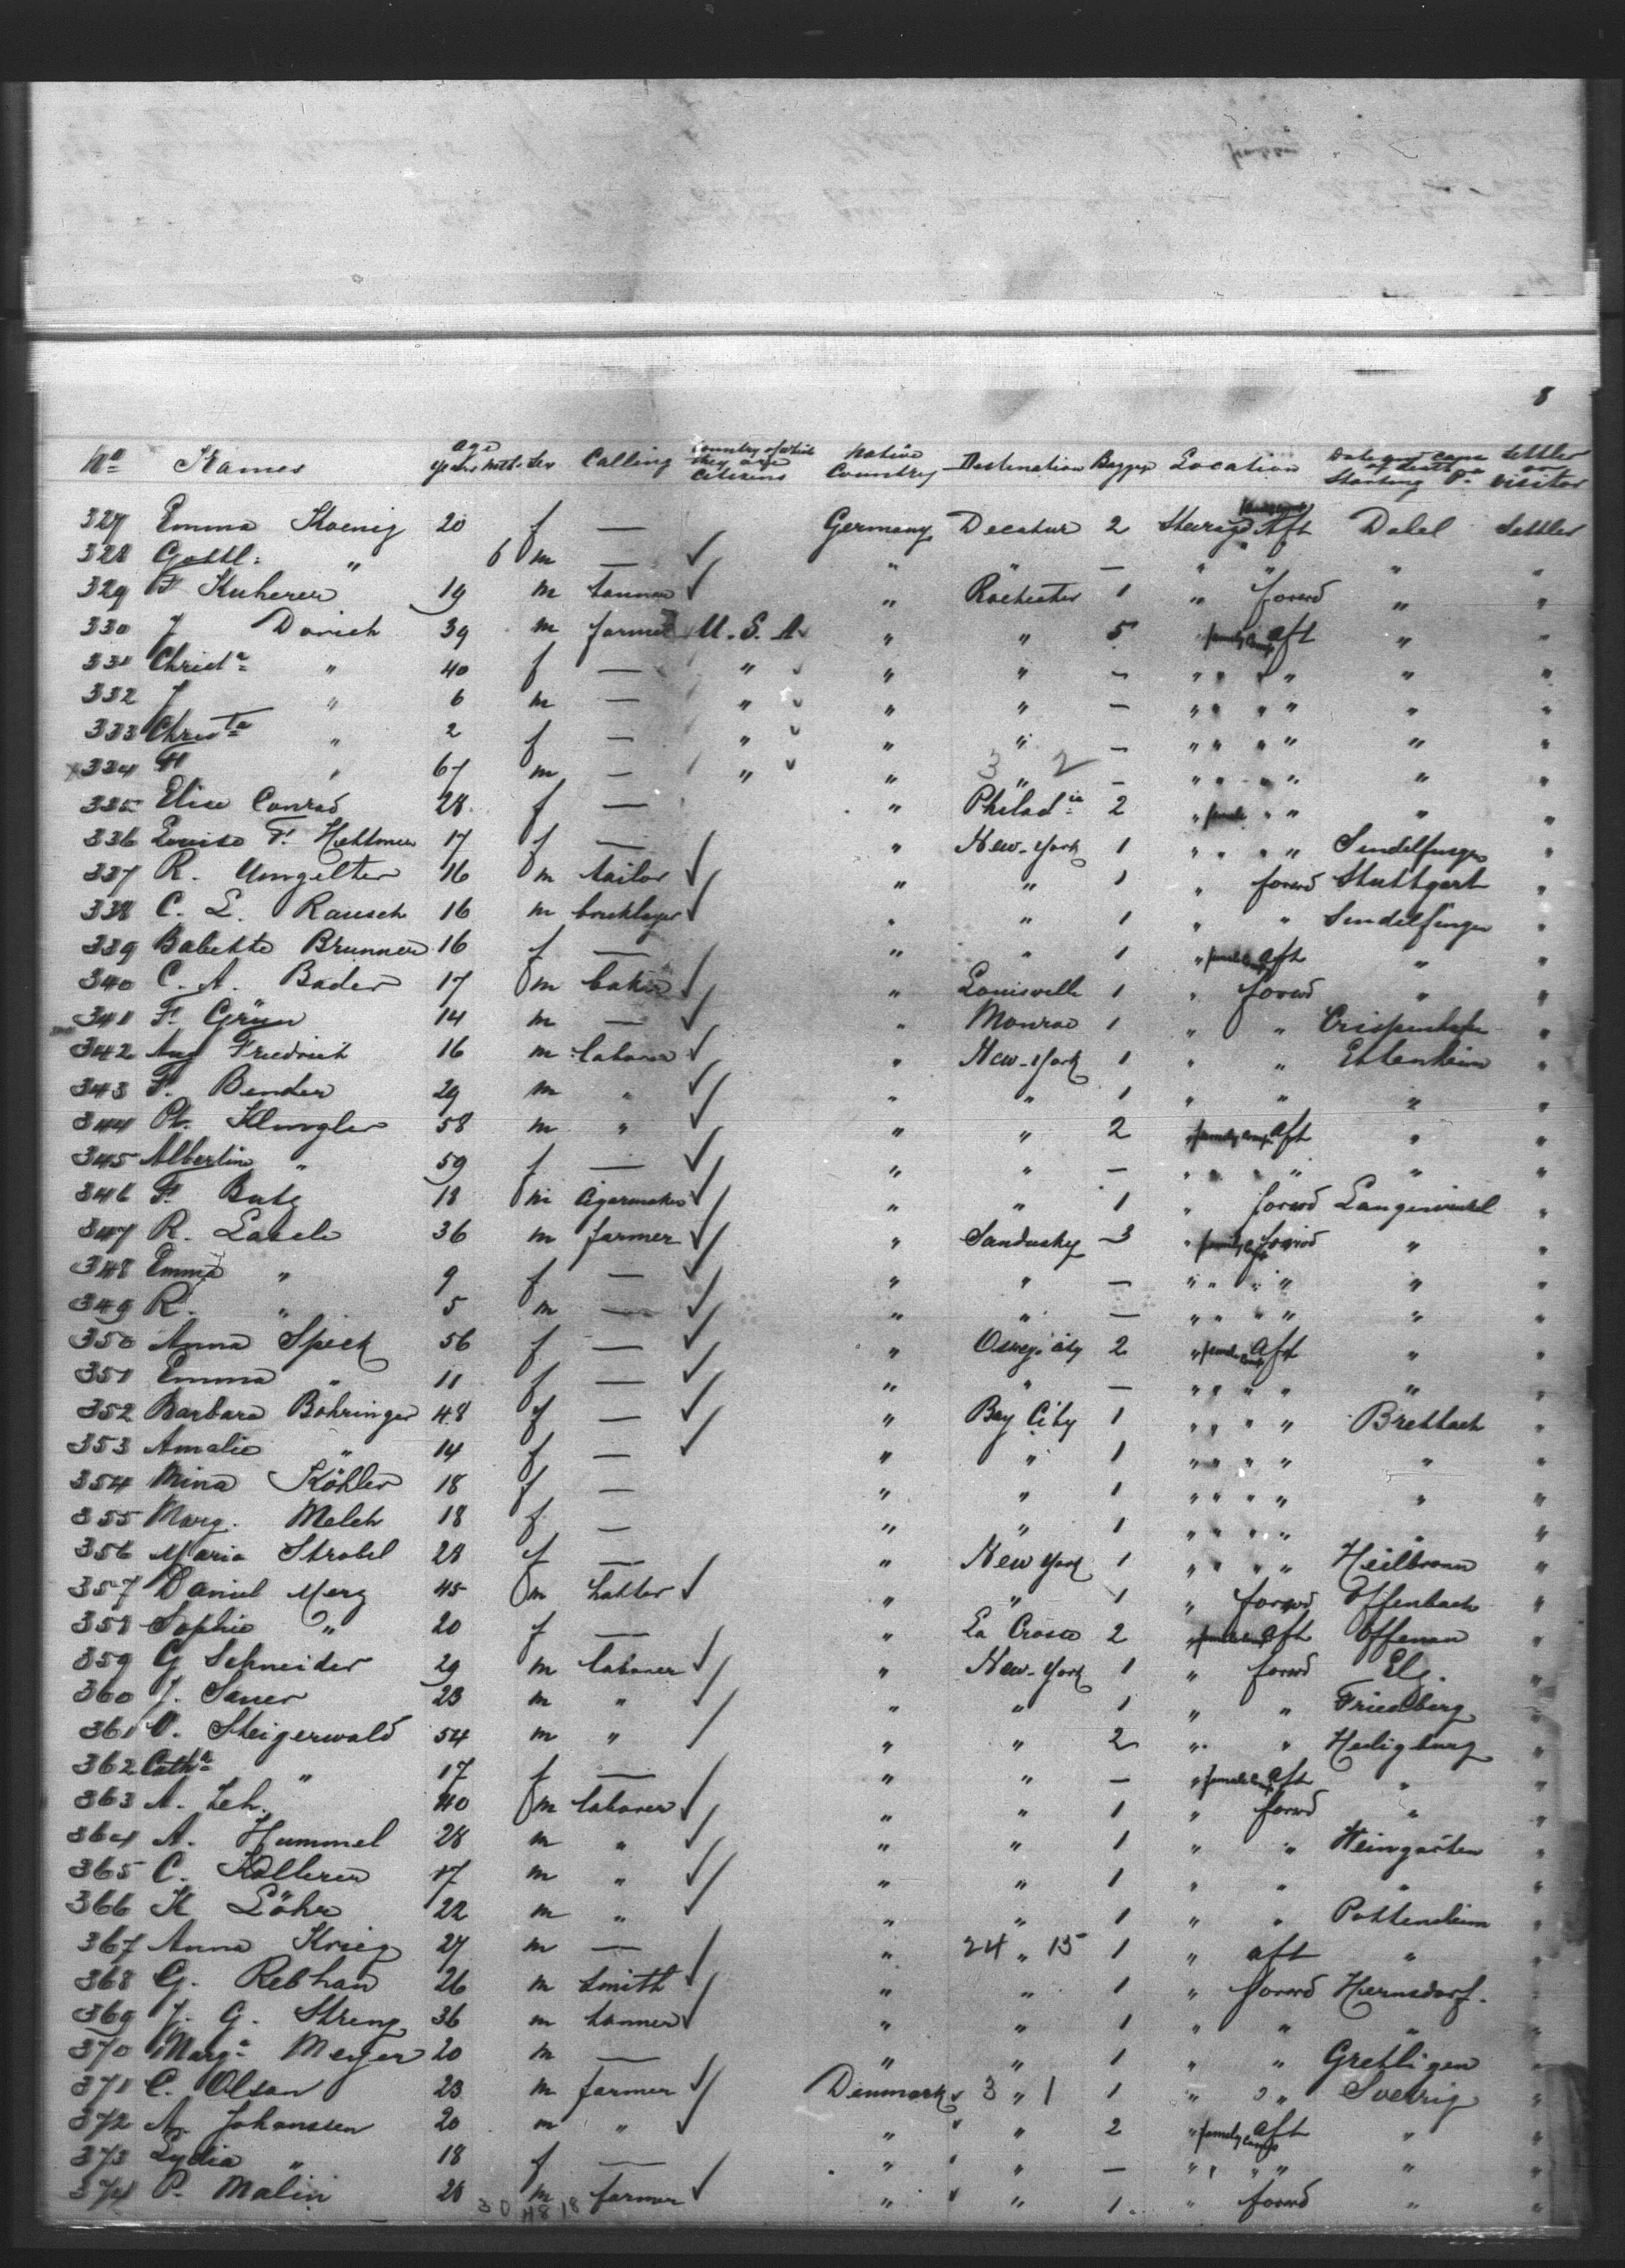 8
No Names age years mth. Sex Calling Country of which they are Citizens Native Country Destination Baggage Location Date and cause of death Starting P. Settler or visitor
327 Emma Koenig 20 f — Germany Decatur 2 Aft Settler
328 Gottl: " 6 m — " " — " " " "
329 F 19 m tanner " Rochester 1 " forwd " "
330 J Dorich 39 m farmer U. S. A. " " 5 " family Comp. aft " "
331 Christa " 40 f — " " " — " " " " " "
332 J " 6 m — " " " — " " " " " "
333 Christa " 2 f — " " " — " " " " " "
334 " 67 m — " " 3 " 2 — " " " " " "
335 Elise Conrad 28 f — " Philadia 2 " " " " "
336 Louise F. 17 f — " New-York 1 " " " " Sindelfingen "
337 R. Ungelter 16 m tailor " " 1 " forwd Stuttgart "
338 C. L. Rausch 16 m bricklayer " " 1 " " Sindelfingen "
339 Babette Brunner 16 f — " " 1 " aft " "
340 C. A. Bader 17 m baker " Louisville 1 " forwd " "
341 F. Grün 14 m — " Monroe 1 " " "
342 Aug Friedrich 16 m laborer " New-York 1 " " Ettenheim "
343 F. Bender 29 m " " " 1 " " " "
344 Klingler 58 m " " " 2 " family Comp. aft " "
345 Albertine " 59 f — " " — " " " " " "
346 F. Butz 18 m Cigarmaker " " 1 " forwd Langenwinkel "
347 R. 36 m farmer " Sandusky 3 " forwd " "
348 Emma " 9 f — " " — " " " " " "
349 R. " 5 m — " " — " " " " " "
350 Anna Speck 56 f — " City 2 " aft " "
351 Emma " 11 f — " " — " " " " " "
352 Barbara Böhringer 48 f — " Bay City 1 " " " " Brettach "
353 Amalie " 14 f — " " 1 " " " " " "
354 Mina Köhler 18 f — " " 1 " " " " " "
355 Marg. Melch 18 f — " " 1 " " " " " "
356 Maria Strobel 28 f — " New York 1 " " " " Heilbronn "
357 Daniel Merz 45 m hatter " " 1 " forwd Offenbach "
358 Sophie " 20 f — " La Crosse 2 " aft "
359 G Schneider 29 m laborer " New-York 1 " forwd "
360 J. Sauer 23 m " " " 1 " " Friedberg "
361 Steigerwald 54 m " " " 2 " " "
362 Catha " 17 f — " " — " aft " "
363 A. Zeh. 40 m laborer " " 1 " forwd " "
364 A. Hummel 28 m " " " 1 " " Weingarten "
365 C. 17 m " " " 1 " " " "
366 K Löhr 22 m " " " 1 " " "
367 Anna Krieg 27 m — " 24 " 15 1 " aft " "
368 G. Rebhan 26 m Smith " " 1 " forwd "
369 J. G. Streng 36 m tanner " " 1 " " " "
370 Marga Meyer 20 m — " " 1 " " "
371 C. Olson 23 m farmer Denmark 3 " 1 1 " " "
372 A. Johanssen 20 m " " " 2 " family Comp aft " "
373 Lydia " 18 f — " " — " " " " " "
374 P. Malin 26 m farmer " " 1 " forwd " "
30 48 18